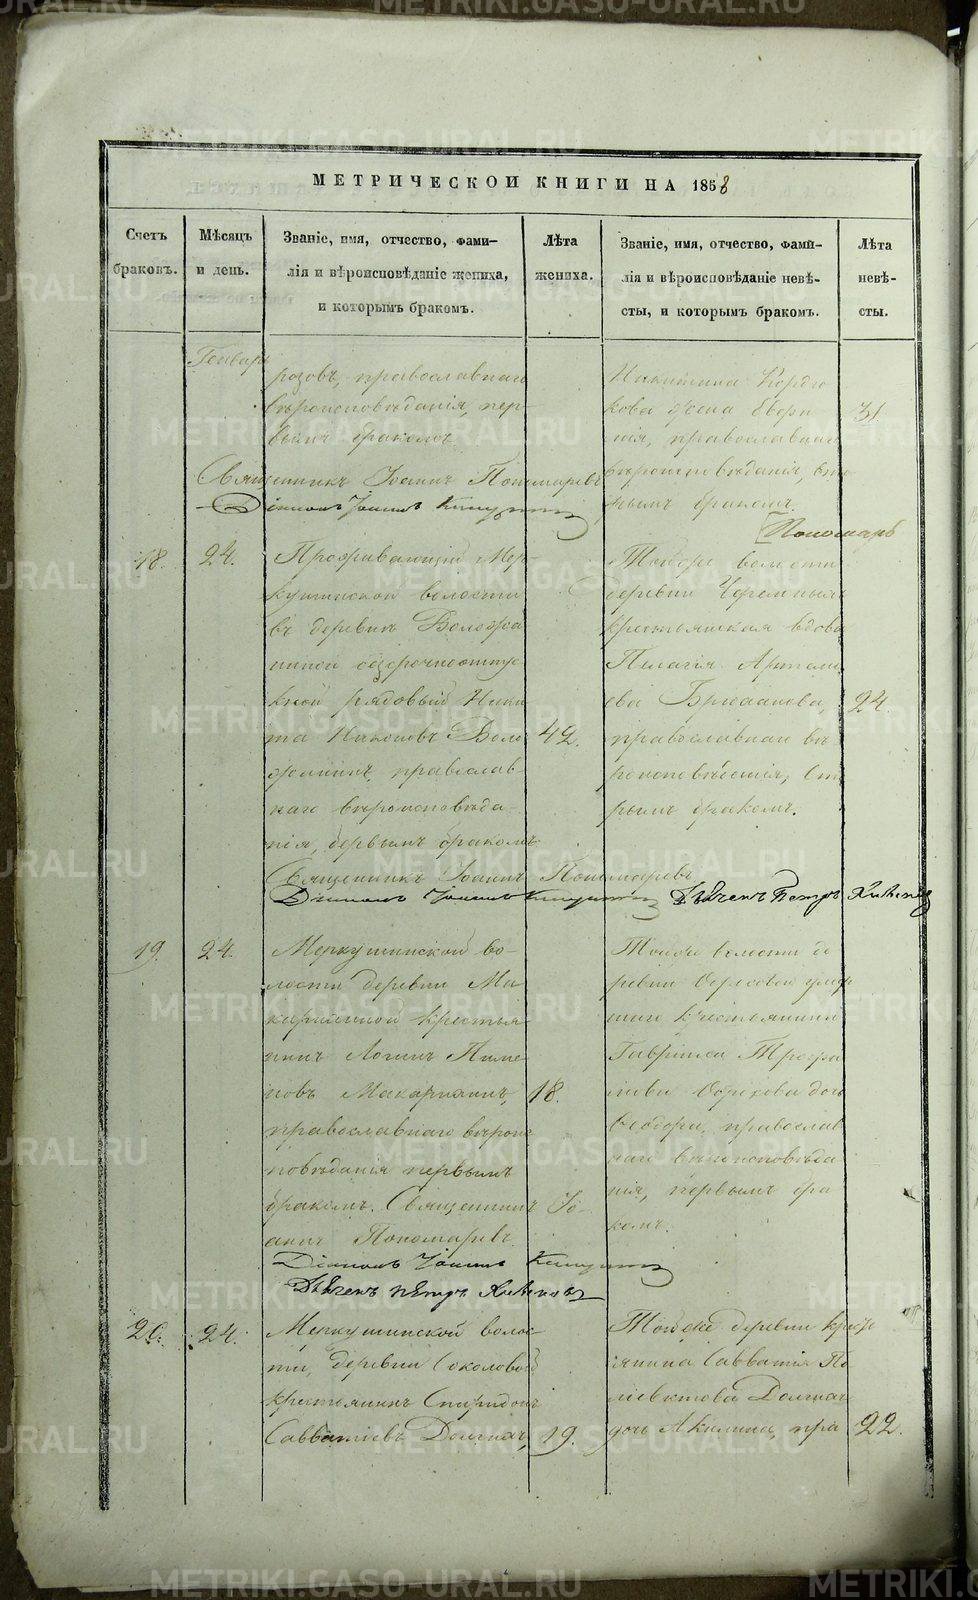 МЕТРИЧЕСКОЙ КНИГИ НА 1858
Счетъ браковъ.
Мѣсяцъ и день.
Званіе, имя, отчество, фами-
лія и вѣроисповѣданіе жениха,
и которымъ бракомъ.
Лѣта жениха.
Званіе, имя, отчество, фами-
лія и вѣроисповѣданіе невѣ-
сты, и которымъ бракомъ.
Лѣта невѣ-
сты.
Генварь
розовъ, православнаго
вѣроисповѣданія, пер-
вымъ бракомъ
Священникъ Іоаннъ Пономаревъ
Діаконъ Іоаннъ
Никитина
кова жена Евфи
мія, православнаго
вѣроисповѣданія, вто
рымъ бракомъ.
Пономарь
31
18.
24.
Проживающій Мер-
кушинской волости
въ деревнѣ Воложа
ниной безсрочноотпус
кной рядовый Ники
та Воло
жанинъ, православ-
наго вѣроисповѣда-
нія, первымъ бракомъ
Священникъ Іоаннъ Пономаревъ
Діаконъ Іоаннъ
42.
Тойже волости
деревни
крестьянская вдова
Пелагія Артемі
ева
православнаго вѣ
роисповѣданія, вто
рымъ бракомъ.
Дьячекъ Петръ
24
19.
24.
Меркушинской во-
лости деревни Ма
карихиной крестья
нинъ Логинъ Пиме
новъ Макарихинъ,
православнаго вѣроис
повѣданія первымъ
бракомъ. Священникъ Іо-
аннъ Пономаревъ
Діаконъ Іоаннъ
Дьячекъ Петръ
18.
Тойже волости де
ревни умер
шаго крестьянина
Гавріила Трофи
мова дочь
Ѳеодора, православ
наго вѣроисповѣда
нія, первымъ бра
комъ.
20.
24.
Меркушинской волос
ти, деревни Соколовой
крестьянинъ Спиридонъ
Савватіевъ
19.
Тойже деревни крест
янина Савватія По
ліевктова
дочь Акилина, пра
22.
METRIKI.GASO-URAL.RU